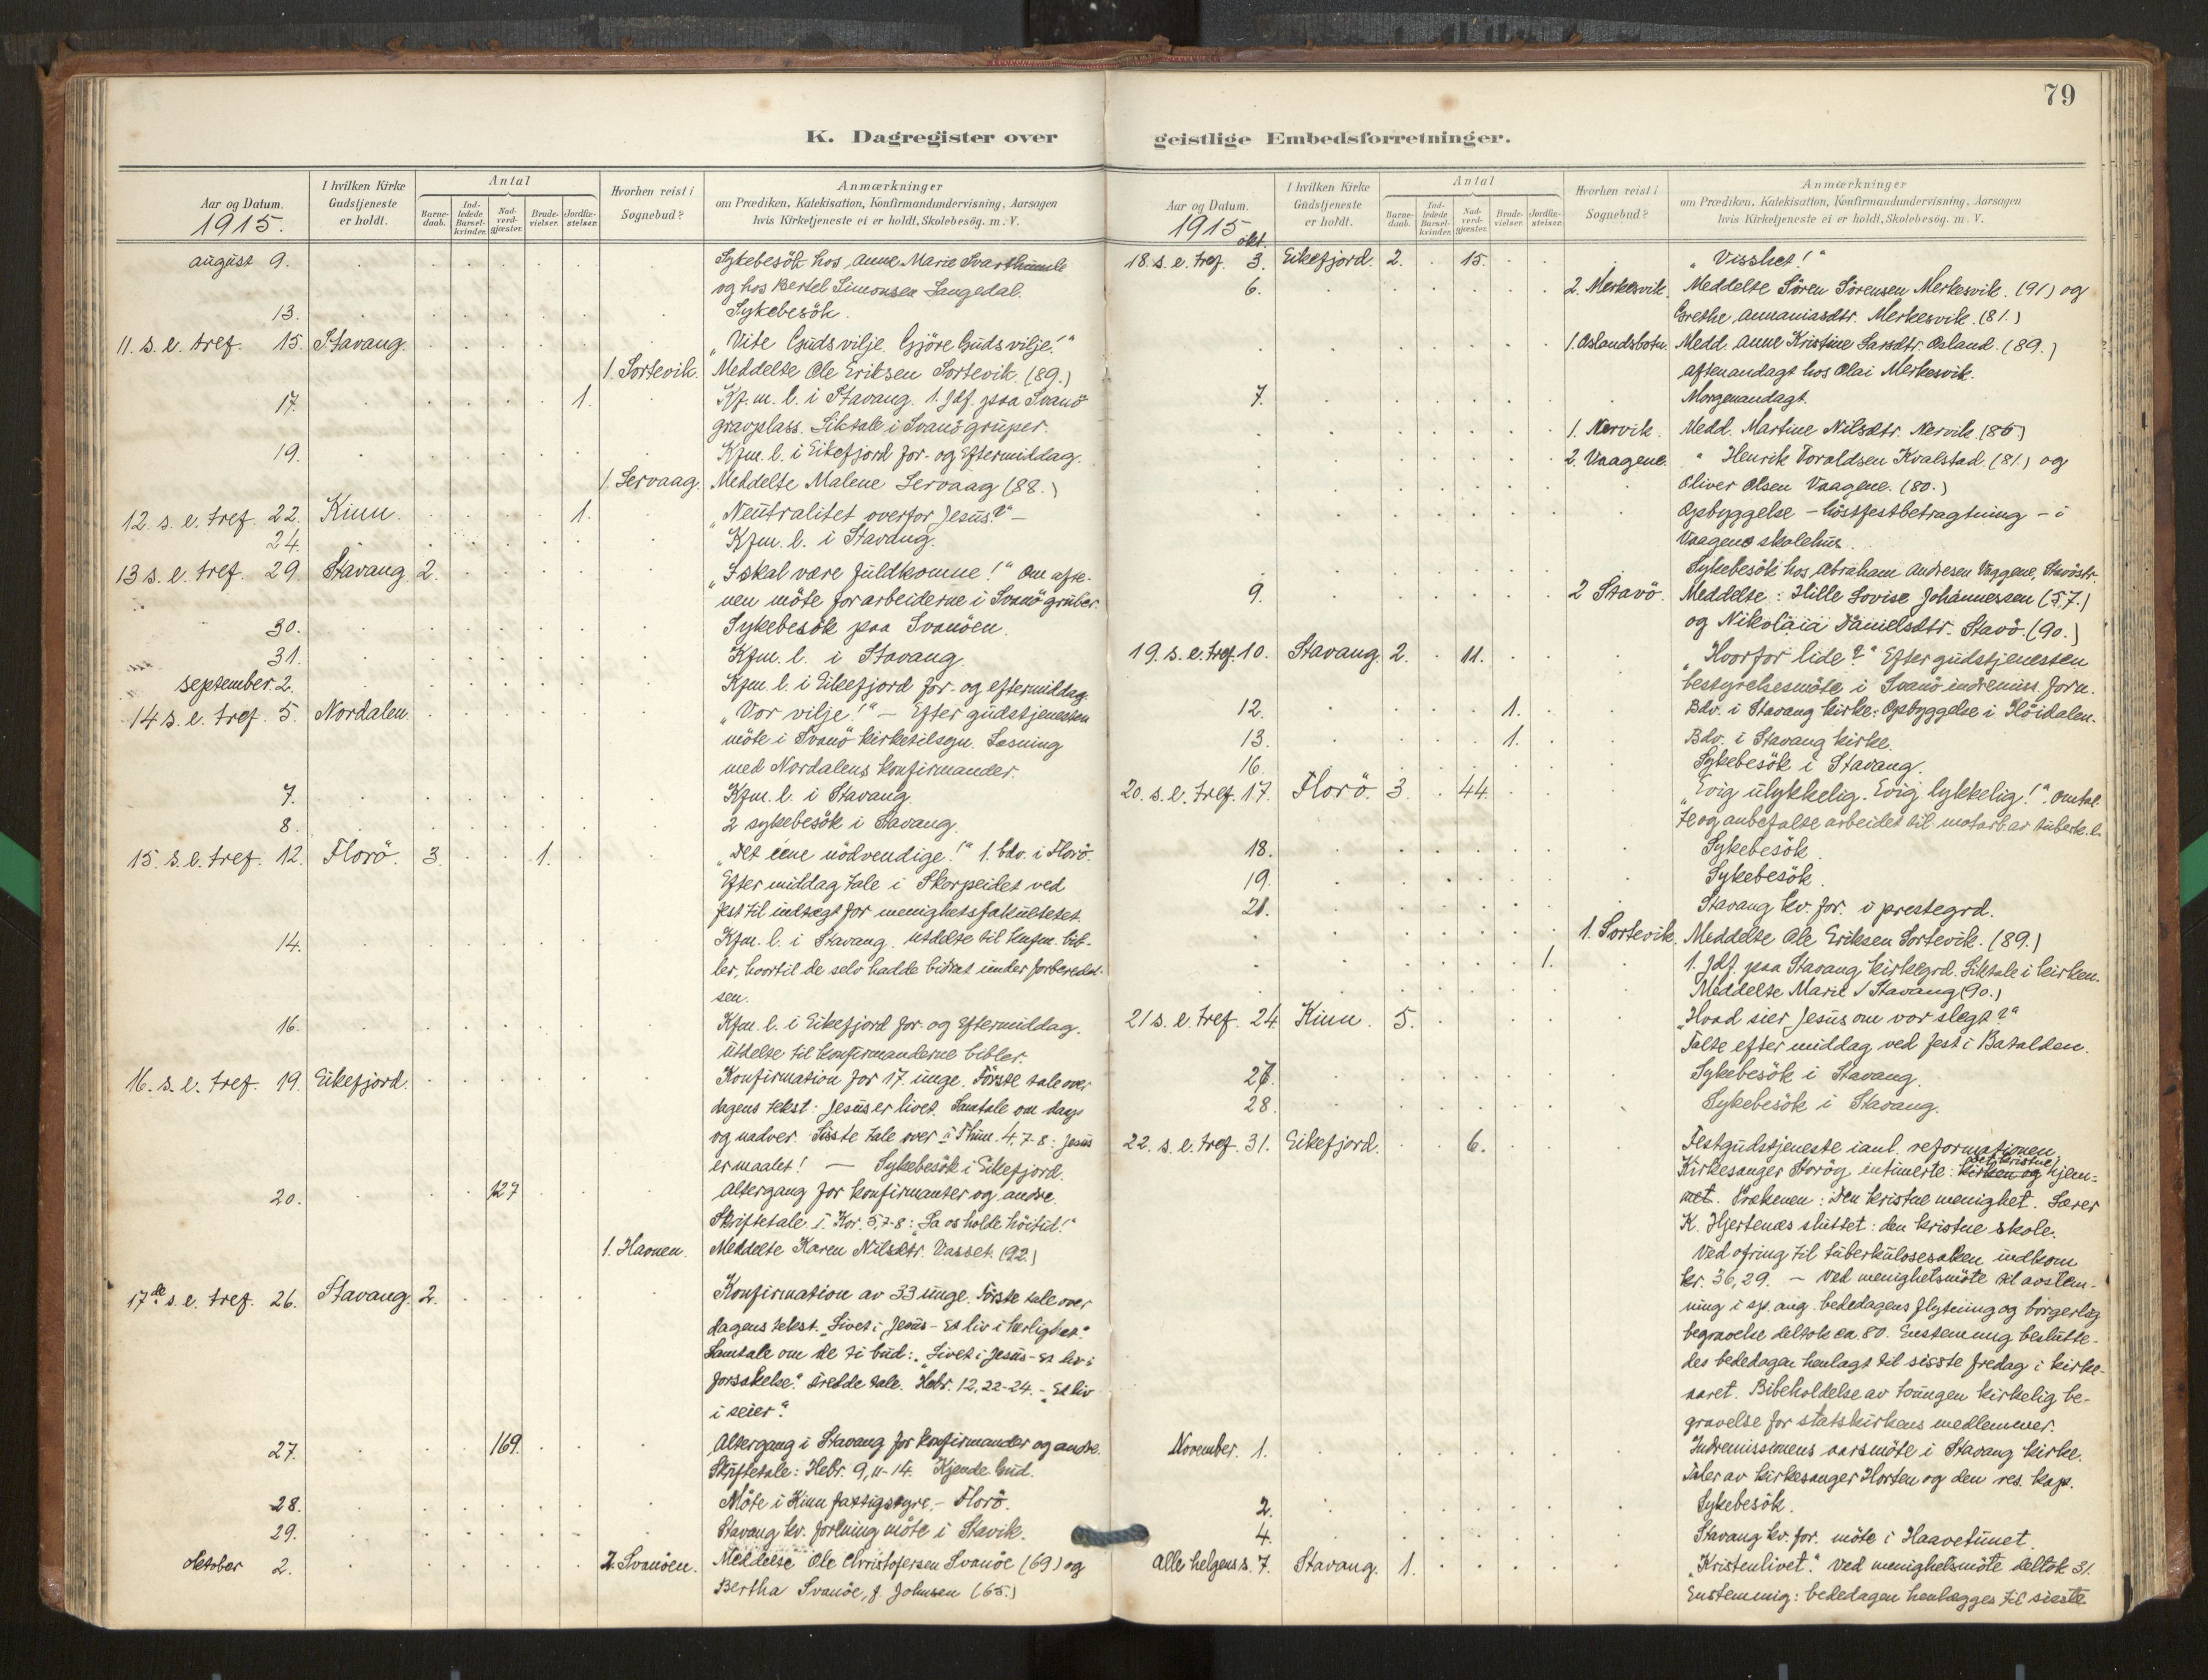 79
K. Dagregister over geistlige Embedsforretninger.
Aar og Datum.
1915.
I hvilken Kirke Gudstjeneste er holdt.
Antal
Barne-daab.
Ind-ledede Barsel-kvinder.
Nad-verd-gjæster.
Brude-vielser.
Jordfæ-stelser.
Hvorhen reist i Sognebud?
Anmærkninger
om Prædiken, Katekisation, Konfirmandundervisning, Aarsagen
hvis Kirketjeneste ei er holdt, Skolebesøg. m. V.
august 9. Sykebesök hos Anne Marie Svarthumle
og hos Bertel Simonsen Langedal.
13. Sykebesök.
11. s. e. tref. 15. Stavang. „Vite Guds vilje. Gjöre Guds vilje!"
1. Sortevik. Meddelte Ole Eriksen Sortevik. (89.)
17. 1. Kfm. l. i Stavang. 1. Jdf. paa Svanö
gravplass. Liktale i Svanö gruper.
19. Kfm. l. i Eikefjord for- og Eftermiddag.
1. Servaag. Meddelte Malene Servaag (88.)
12. s. e. tref. 22. Kinn. 1. „Neutralitet overfor Jesus?" —
24. Kfm. l. i Stavang.
13 s. e. tref. 29. Stavang 2. „I skal være fuldkomne!" Om afte-
nen möte for arbeiderne i Svanö gruber.
30. Sykebesök paa Svanöen.
31. Kfm. l. i Stavang.
september. 2. Kfm. l. i Eikefjord for- og eftermiddag.
14 s. e. tref. 5. Nordalen. „Vor vilje!" — Efter gudstjenesten
möte i Svanö kirketilsyn. Læsning
med Nordalens konfirmander.
7. Kfm. l. i Stavang.
8. 2 sykebesök i Stavang.
15. s. e. tref. 12. Florö. 3. 1. „Det ene nödvendige!" 1. bdv. i Florö.
Efter middag tale i Skorpeidet ved
fest til indtægt for menighetsfakultetet.
14. Kfm. l. i Stavang. utdelte til konfm. bib-
ler, hvortil de selv hadde bidrat under forberedel-
sen.
16. Kfm. l. i Eikefjord for- og Eftermiddag.
Utdelse til konfirmanderne bibler.
16. s. e. tref. 19. Eikefjord. Konfirmation for 17 unge. Förste tale over
dagens tekst: Jesus er livet. Samtale om daap
og nadver. Siste tale over 4. 7-8: Jesus
er maalet! — Sykebesök i Eikefjord.
20. 127 Altergang for konfirmanter og andre.
Skriftetale. I. Kor. 5,7-8: „La os holde höitid!"
1. Havnen. Meddelte Karen Nilsdtr. Vasset. (92.)
17de s. e. tref. 26. Stavang. 2. Konfirmation av 33 unge. Förste tale over
dagens tekst. „Livet i Jesus - Et liv i herlighet."
Samtale om de ti bud: „Livet i Jesus - et liv i
forsakelse." Tredde tale. Hebr. 12, 22-24. - „Et liv
i seier."
27. 169. Altergang i Stavang for konfirmander og andre.
Skriftetale: Hebr. 9, 11-14. Kjende Gud.
28. Möte i Kinn fattigstyre. - Florö.
29. Stavang kv. forening möte i Stavik.
oktober 2. 2. Svanöen. Meddelte Ole Christofersen Svanöe (69) og
Bertha Svanöe, f. Johnsen (65.)
Aar og Datum.
1915
okt.
I hvilken Kirke Gudstjeneste er holdt.
Antal
Barne-daab.
Ind-ledede Barsel-kvinder.
Nad-verd-gjæster.
Brude-vielser.
Jordfæ-stelser.
Hvorhen reist i Sognebud?
Anmærkninger
om Prædiken, Katekisation, Konfirmandundervisning, Aarsagen
hvis Kirketjeneste ei er holdt, Skolebesøg. m. V.
18. s. e. tref. 3. Eikefjord. 2. 15. „Visshet!"
6. 2. Merkesvik. Meddelte Sören Sörensen Merkesvik. (91) og
Grethe Annaniasdtr. Merkesvik. (81.)
1. Oslandsbotn. Medd. Anne Kristine Larsdtr. Osland. (89.)
aftenandagt hos Olai Merkesvik.
7. Morgenandagt.
1. Nervik. Medd. Martine Nilsdtr. Nervik. (85)
2. Vaagene. " Henrik Toraldsen Kvalstad. (81.) og
Oliver Olsen Vaagene. (80.)
Opbyggelse - höstfestbetragtning - i
Vaagene skolehus.
Sykebesök hos Abraham Andresen Vaagene,
9. 2 Stavö. Meddelte: Hille Lovise Johannessen (57.)
og Nikolaia Danielsdtr. Stavö. (90.)
19. s. e. tref. 10. Stavang. 2. 11. „Hvorfor lide?" Efter gudstjenesten
bestyrelsesmöte i Svanö indremiss. foren.
12. 1. Bdv. i Stavang kirke. Opbyggelse i Höidalen.
13. 1. Bdv. i Stavang kirke.
16. Sykebesök i Stavang.
20. s. e. tref. 17. Florö. 3. 44. „Evig ulykkelig. Evig lykkelig!". Omtal-
te og anbefalte arbeidet til motarb. av tuberk. l.
18. Sykebesök.
19. Sykebesök.
21. Stavang kv. for. i prestegrd.
1. Sortevik. Meddelte Ole Eriksen Sortevik. (89.)
1. 1. Jdf. paa Stavang kirkegrd. Liktale i kirken.
Meddelte Marie Stavang (90.)
21 s. e. tref. 24 Kinn. 5. „Hvad sier Jesus om vor slegt?"
Talte efter middag ved fest i Batalden.
27. Sykebesök i Stavang.
28. Sykebesök i Stavang.
22. s. e. tref. 31. Eikefjord. 6. Festgudstjeneste ianl. reformationen.
Kirkesanger Storög intimerte: kirken og det kristne hjem-
met. Prækenen: Den kristne menighet. Lærer
K. Hjertenæs sluttet: den kristne skole.
Ved ofring til tuberkulosesaken indkom
kr. 36,29. — Ved menighetsmöte til avstem-
ning i sp. ang. bededagens flytning og borgerlig
begravelse deltok ca. 80. Enstemmig beslutte-
des bededagen henlagt til sisste fredag i kirke-
aaret. Bibeholdelse av tvungen kirkelig be-
gravelse for statskirkens medlemmer.
November. 1. Indremissionens aarsmöte i Stavang kirke.
Taler av kirkesanger Horten og den res. kap.
2. Sykebesök.
4. Stavang kv. for. möte i Haavetunet.
Alle helgens s. 7. Stavang. 1. „Kristenlivet." Ved menighetsmöte deltok 31.
Enstemmig: bededagen henlægges til sisste